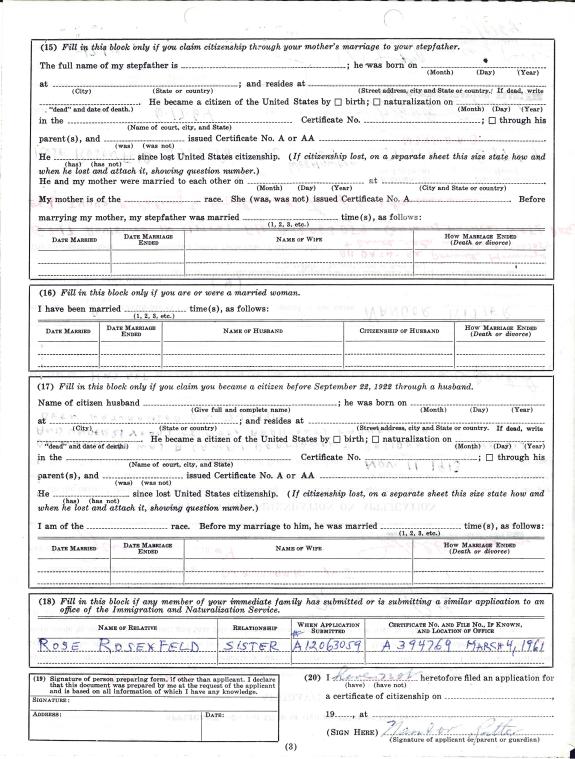 (15) Fill in this block only if you claim citizenship through your mother's marriage to your stepfather.
The full name of my stepfather is ; he was born on
(Month) (Day) (Year)
at ; and resides at
(City) (State or country) (Street address, city and State or country. If dead, write
"dead" and date of death.) He became a citizen of the United States by ☐ birth; ☐ naturalization on
(Month) (Day) (Year)
in the Certificate No. ; ☐ through his
(Name of court, city, and State)
parent(s), and issued Certificate No. A or AA
(was) (was not)
He since lost United States citizenship. (If citizenship lost, on a separate sheet this size state how and
(has) (has not)
when he lost and attach it, showing question number.)
He and my mother were married to each other on at
(Month) (Day) (Year) (City and State or country)
My mother is of the race. She (was, was not) issued Certificate No. A Before
marrying my mother, my stepfather was married time(s), as follows:
(1, 2, 3, etc.)
DATE MARRIED DATE MARRIAGE ENDED NAME OF WIFE HOW MARRIAGE ENDED (Death or divorce)
(16) Fill in this block only if you are or were a married woman.
I have been married time(s), as follows:
(1, 2, 3, etc.)
DATE MARRIED DATE MARRIAGE ENDED NAME OF HUSBAND CITIZENSHIP OF HUSBAND HOW MARRIAGE ENDED (Death or divorce)
(17) Fill in this block only if you claim you became a citizen before September 22, 1922 through a husband.
Name of citizen husband ; he was born on
(Give full and complete name) (Month) (Day) (Year)
at ; and resides at
(City) (State or country) (Street address, city and State or country. If dead, write
"dead" and date of death.) He became a citizen of the United States by ☐ birth; ☐ naturalization on
(Month) (Day) (Year)
in the Certificate No. ; ☐ through his
(Name of court, city, and State)
parent(s), and issued Certificate No. A or AA
(was) (was not)
He since lost United States citizenship. (If citizenship lost, on a separate sheet this size state how and
(has) (has not)
when he lost and attach it, showing question number.)
I am of the race. Before my marriage to him, he was married time(s), as follows:
(1, 2, 3, etc.)
DATE MARRIED DATE MARRIAGE ENDED NAME OF WIFE HOW MARRIAGE ENDED (Death or divorce)
(18) Fill in this block if any member of your immediate family has submitted or is submitting a similar application to an
office of the Immigration and Naturalization Service.
NAME OF RELATIVE RELATIONSHIP WHEN APPLICATION SUBMITTED CERTIFICATE NO. AND FILE NO., IF KNOWN, AND LOCATION OF OFFICE
ROSE ROSENFELD SISTER A12063059 A 394769 MARCH 4, 1961
(19) Signature of person preparing form, if other than applicant. I declare
that this document was prepared by me at the request of the applicant
and is based on all information of which I have any knowledge.
SIGNATURE:
ADDRESS: DATE:
(20) I have not heretofore filed an application for
(have) (have not)
a certificate of citizenship on
19 , at
(SIGN HERE)
(Signature of applicant or parent or guardian)
(3)